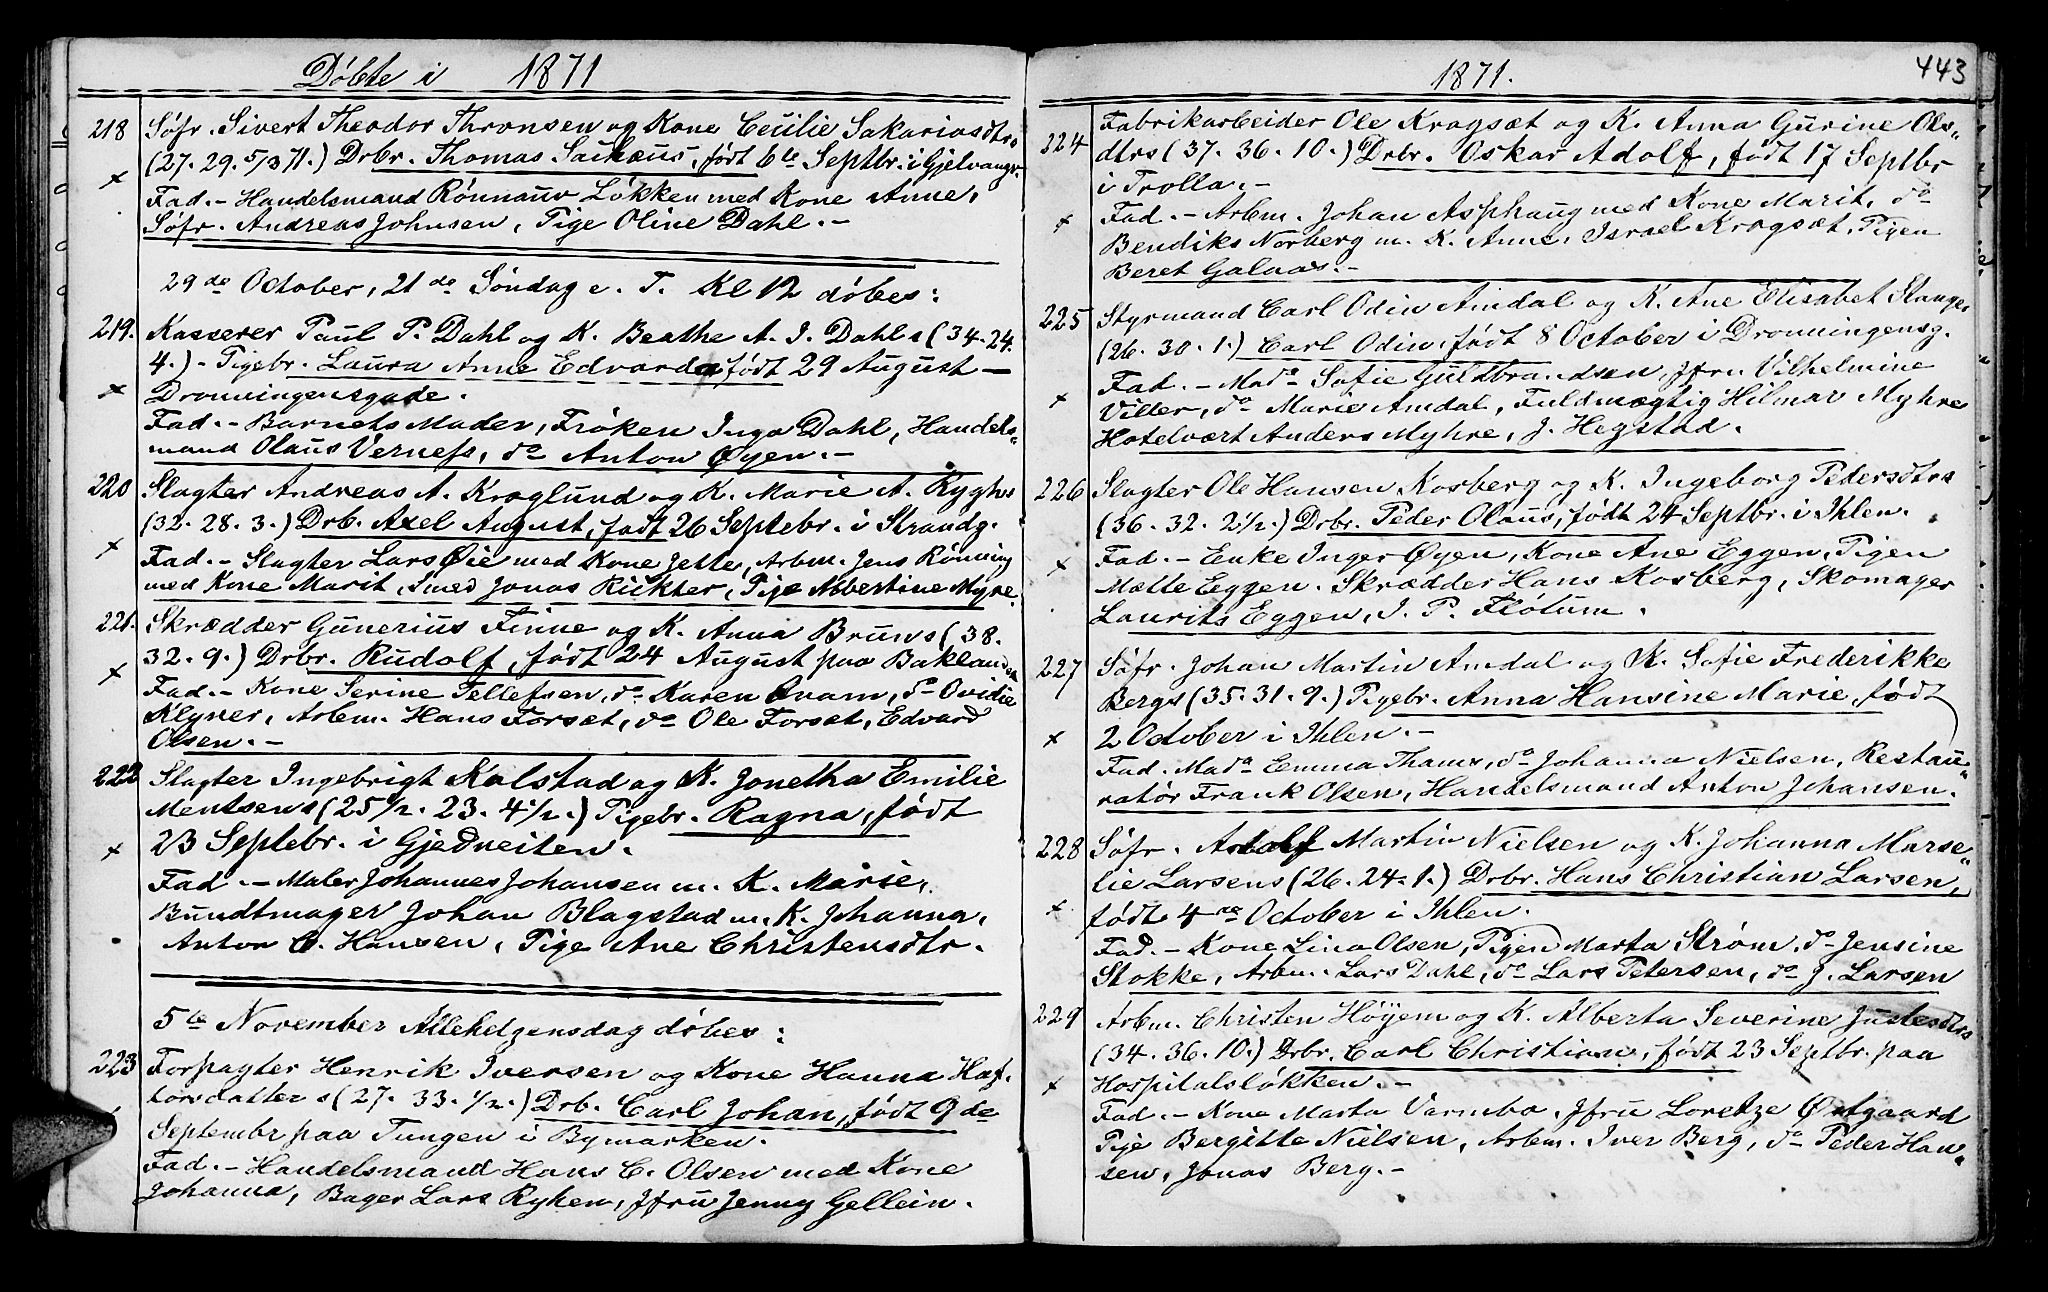 Döbte i 1871
218 Söfr. Sivert Theodor Thronsen og Kone Cecilie Sakariasdtrs
(27. 29. 5/3 71.) Drbr. Thomas, født 6te Septbr. i Gjelvangv.
x Fad. - Handelsmand Rönnauv Løkken med Kone Anne,
Søfr. Andreas Johnsen, Pige Oline Dahl. -
29de October, 21de Søndag e. T. Kl 12 døbes:
219. Kasserer Paul P. Dahl og K. Beathe A. J. Dahls (34. 24.
4.) - Pigebr. Laura Anne Edvarda født 29 August -
x Dronningensgade.
Fad. - Barnets Moder, Frøken Inga Dahl, Handels„
mand Olaus Verness, do Anton Øyen. -
220 Slagter Andreas A. Kroglund og K. Marie A. Ryghs
(32. 28. 3.) Drb. Axel August, født 26 Septebr. i Strandg.
x Fad. - Slagter Lars Øie med Kone Jette, Arbm. Jens Rönning
med Kone Marit, Smed Jonas Richter, Pige Albertine Myre.
221. Skrædder Gunerius Finne og K. Anna Bruns (38.
32. 9.) Drbr. Rudolf, født 24 August paa Baklandet
x Fad. - Kone Serine Tellefsen, do Karen Qvam, do Ovidie
Klyver, Arbm. Hans Forsæt, do Ole Forsæt, Edvard
Olsen. -
222 Slagter Ingebrigt Kalstad og K. Jonetha Emilie
Mentsens (25 1/2. 23. 4 1/2.) Pigebr. Ragna, født
x 23 Septebr. i Gjedveiten.
Fad. - Maler Johannes Johansen m. K. Marie,
Bundtmager Johan Blagstad m. K. Johanna,
Anton C. Hansen, Pige Ane Christensdtr.
5te November Allehelgensdag døbes:
223 Forpagter Henrik Iversen og Kone Hanna Haf„
torsdatters (27. 33. 1/2.) Drb. Carl Johan, født 9de
Septembr paa Tungen i Bymarken.
Fad. - Handelsmand Hans C. Olsen med Kone
Johanna, Bager Lars Ryhen, Jfru Jenny Gellein.
1871. 443
224 Fabrikarbeider Ole Kragsæt og K. Anna Gurine Ols„
dtrs (37. 36. 10.) Drbr. Oskar Adolf, født 17 Septbr
i Trolla. -
x Fad. - Arbm. Johan Asphaug med Kone Marit, do
Bendiks Norberg m. K. Anne, Israel Kragsæt, Pigen
Beret Galaas. -
225 Styrmand Carl Odin Amdal og K. Ane Elisabet Stanges
(26. 30. 1.) Carl Odin, født 8 October i Dronningensg.
x Fad. - Mada Sofie Guldbrandsen, Jfru Vilhelmine
Viller, do Marie Amdal, Fuldmægtig Hilmar Myhre
Hotelvært Anders Myhre, J. Hegstad.
226 Slagter Ole Hansen Kosberg og K. Ingeborg Pedersdtrs
(36. 32. 2 1/2.) Drbr. Peder Olaus, født 24 Septbr. i Ihlen.
x Fad. - Enke Inger Øyen, Kone Ane Eggen, Pigen
Mætte Eggen. Skrædder Hans Kosberg, Skomager
Laurits Eggen, J. P. Flötum.
227 Söfr. Johan Martin Amdal og K. Sofie Frederikke
Bergs (35. 31. 9.) Pigebr. Anna Hansine Marie, født
x 2 October i Ihlen. -
Fad. Mada Emma Thams, do Johanna Nielsen, Restau„
ratör Frank Olsen, Handelsmand Anton Johansen.
228 Söfr. Adolf Martin Nielsen og K. Johanna Marse„
lie Larsens (26. 24. 1.) Drbr. Hans Christian Larsen,
x født 4de October i Ihlen.
Fad. - Kone Lina Olsen, Pigen Marta Strøm, do Jensine
Stokke, Arbm. Lars Dahl, do Lars Petersen, do J. Larsen
229 Arbm. Christen Høyem og K. Alberta Severine Justesdtrs
(34. 36. 10.) Drbr. Carl Christian, født 23 Septbr. paa
x Hospitalsløkken. -
Fad. - Kone Marta Varmbo, Jfru Loretze Østgaard
Pige Bergitte Nielsen, Arbm. Iver Berg, do Peder Han„
sen, Jonas Berg. -